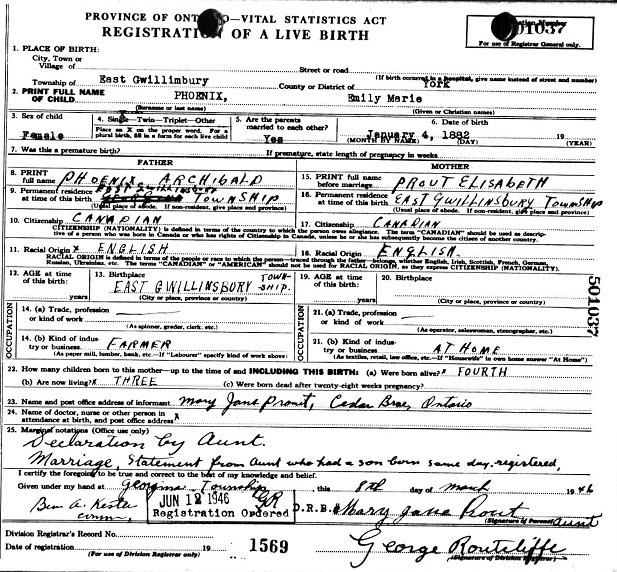 PROVINCE OF ONTARIO—VITAL STATISTICS ACT
REGISTRATION OF A LIVE BIRTH
01037
For use of Registrar General only.
1. PLACE OF BIRTH:
City, Town or
Village of
Street or road
(If birth occurred in a hospital, give name instead of street and number)
Township of East Gwillimbury County or District of York
2. PRINT FULL NAME
OF CHILD PHOENIX, Emily Marie
(Surname or last name) (Given or Christian names)
3. Sex of child
Female
4. Single—Twin—Triplet—Other
Place an X on the proper word. For a
plural birth, fill in a form for each live child
5. Are the parents
married to each other?
Yes
6. Date of birth
January 4, 1882 19
(MONTH BY NAME) (DAY) (YEAR)
7. Was this a premature birth? If premature, state length of pregnancy in weeks
FATHER
MOTHER
8. PRINT
full name PHOENIX ARCHIBALD
15. PRINT full name
before marriage PROUT ELISABETH
9. Permanent residence
at time of this birth EAST GWILLINSBURY TOWNSHIP
(Usual place of abode. If non-resident, give place and province)
16. Permanent residence
at time of this birth EAST GWILLINSBURY TOWNSHIP
(Usual place of abode. If non-resident, give place and province)
10. Citizenship CANADIAN
17. Citizenship CANADIAN
CITIZENSHIP (NATIONALITY) is defined in terms of the country to which the person owes allegiance. The term "CANADIAN" should be used as descrip-
tive of a person who was born in Canada or who has rights of Citizenship in Canada, unless he or she has subsequently become the citizen of another country.
11. Racial Origin x ENGLISH
18. Racial Origin ENGLISH.
RACIAL ORIGIN is defined in terms of the people or race to which the person—traced through the father belongs, whether English, Irish, Scottish, French, German,
Russian, Ukrainian, etc. The terms "CANADIAN" or "AMERICAN" should not be used for RACIAL ORIGIN, as they express CITIZENSHIP (NATIONALITY).
12. AGE at
time of
this birth:
years
13. Birthplace
EAST GWILLINSBURY TOWN-
SHIP.
(City or place, province or country)
19. AGE at time
of this birth:
years
20. Birthplace
(City or place, province or country)
501037
OCCUPATION
14. (a) Trade, profession
or kind of work
(As spinner, grader, clerk, etc.)
14. (b) Kind of indus-
try or business FARMER
(As paper mill, lumber, bank, etc.—If "Labourer" specify kind of work above)
OCCUPATION
21. (a) Trade, profession
or kind of work
(As operator, saleswoman, stenographer, etc.)
21. (b) Kind of indus-
try or business AT HOME
(As textiles, retail, law office, etc.—If "Housewife" in own home answer "At Home")
22. How many children born to this mother—up to the time of and INCLUDING THIS BIRTH: (a) Were born alive? x FOURTH
(b) Are now living? x THREE (c) Were born dead after twenty-eight weeks pregnancy?
23. Name and post office address of informant Mary Jane Prout, Cedar Brae, Ontario
24. Name of doctor, nurse or other person in
attendance at birth, and post office address x
25. Marginal notations (Office use only)
Declaration by Aunt.
Marriage, Statement from Aunt who had a son born same day. registered,
I certify the foregoing to be true and correct to the best of my knowledge and belief.
Given under my hand at Georgina Township, this 8th day of March 1946
JUN 12 1946
Registration Ordered
D.R.B. Mary Jane Prout
(Signature of Parent) Aunt
Division Registrar's Record No.
Date of registration 19
(For use of Division Registrar only)
1569
George Routcliffe
(Signature of Division Registrar)